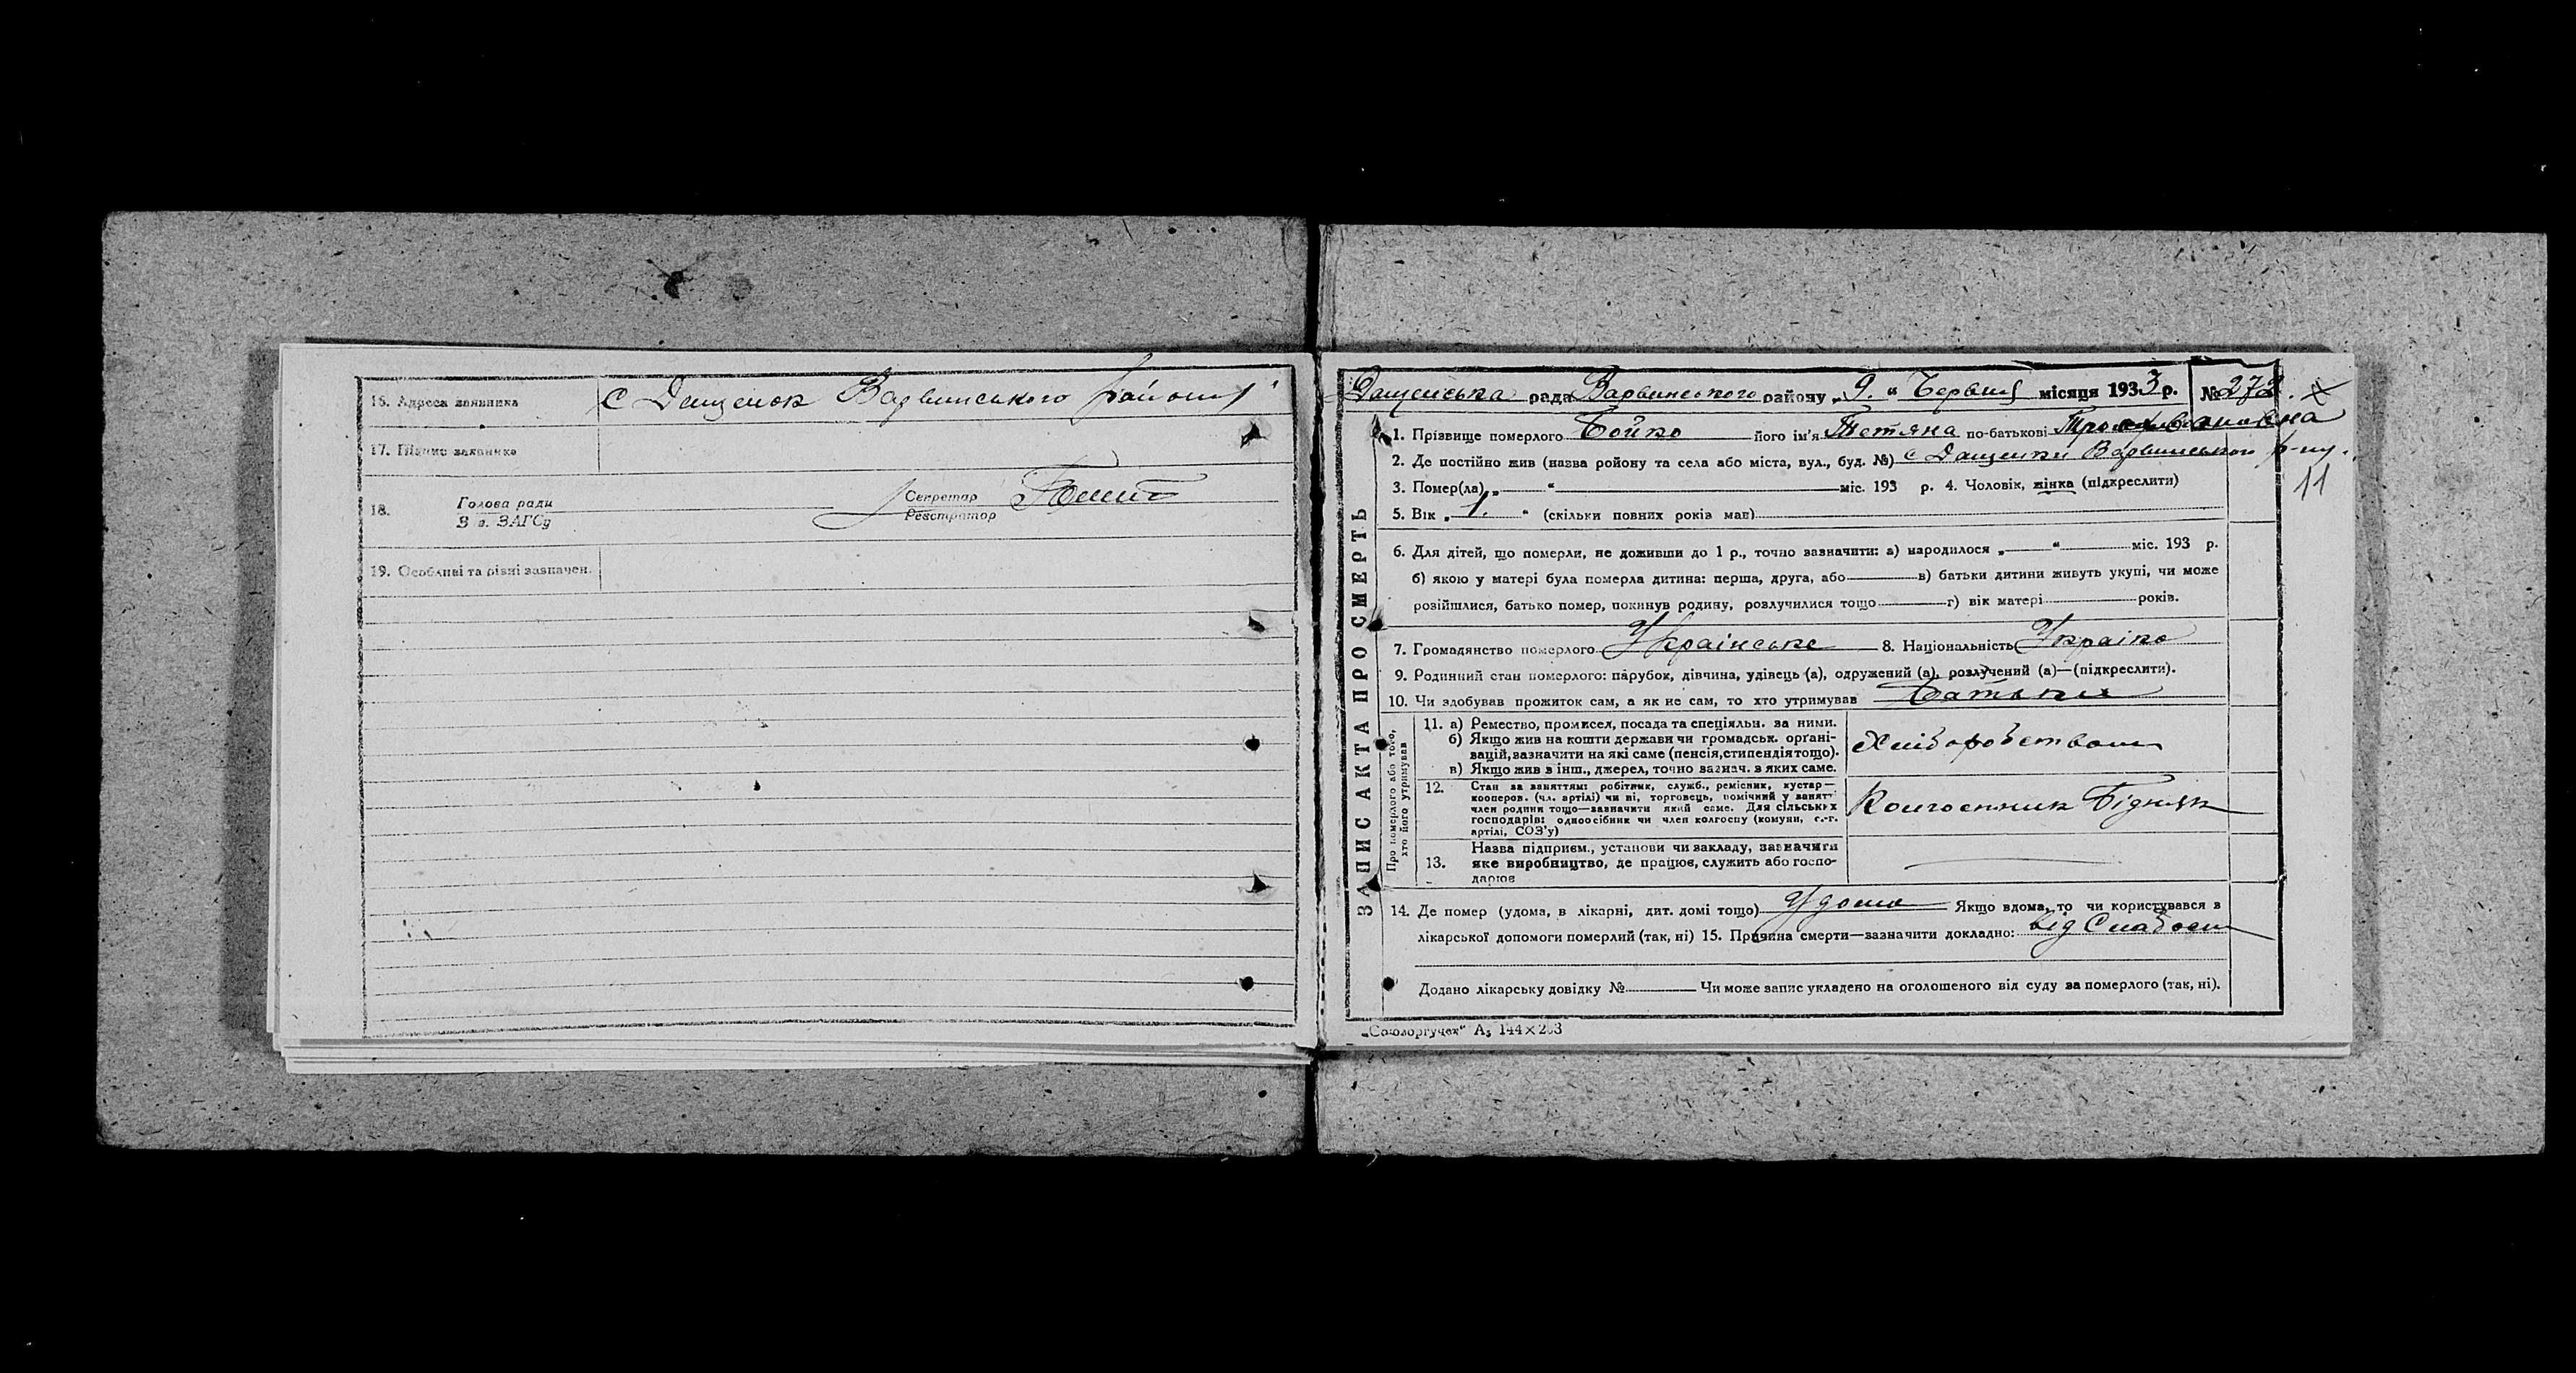 16. Адреса заявника с Дащенок Варвинського району
17. Підпис заявника
18. Голова ради
З в. ЗАГСу
Секретар
Реєстратор
19. Особливі та різні зазначен.
Дащенська рада Варвинського району „9.“ Червня місяця 1933 р. №272.
ЗАПИС АКТА ПРО СМЕРТЬ
1. Прізвище померлого Бойко його ім'я Тетяна по-батькові
2. Де постійно жив (назва ройону та села або міста, вул., буд. №) с Дащенки Варвинського р-ну.
3. Помер(ла) „ “ міс. 193 р. 4. Чоловік, жінка (підкреслити)
11
5. Вік „ 1. “ (скільки повних років мав)
6. Для дітей, що померли, не доживши до 1 р., точно зазначити: а) народилося „ “ міс. 193 р.
б) якою у матері була померла дитина: перша, друга, або в) батьки дитини живуть укупі, чи може
розійшлися, батько помер, покинув родину, розлучилися тощо г) вік матері років.
7. Громадянство померлого Українське 8. Національність Україно
9. Родинний стан померлого: парубок, дівчина, удівець (а), одружений (а), розлучений (а)—(підкреслити).
10. Чи здобував прожиток сам, а як не сам, то хто утримував Батьки
Про померлого або того,
хто його утримував
11. а) Ремество, промисел, посада та спеціяльн. за ними.
б) Якщо жив на кошти держави чи громадськ. органі-
зацій, зазначити на які саме (пенсія, стипендія тощо).
в) Якщо жив з інш., джерел, точно зазнач. з яких саме.
Хліборобством
12. Стан за заняттям: робітник, служб., ремісник, кустар—
кооперов. (чл. артілі) чи ні, торговець, помічний у занятт
член родини тощо—зазначити який саме. Для сільських
господарів: одноосібник чи член колгоспу (комуни, с.-г.
артілі, СОЗ'у)
Колгоспник Бідняк
13. Назва підприєм., установи чи закладу, зазначити
яке виробництво, де працює, служить або госпо-
дарює
14. Де помер (удома, в лікарні, дит. домі тощо) Удома Якщо вдома, то чи користувався в
лікарської допомоги померлий (так, ні) 15. Причина смерти—зазначити докладно: від Слабости
Додано лікарську довідку № Чи може запис укладено на оголошеного від суду за померлого (так, ні).
„Союзоргучет“ А₅ 144×203